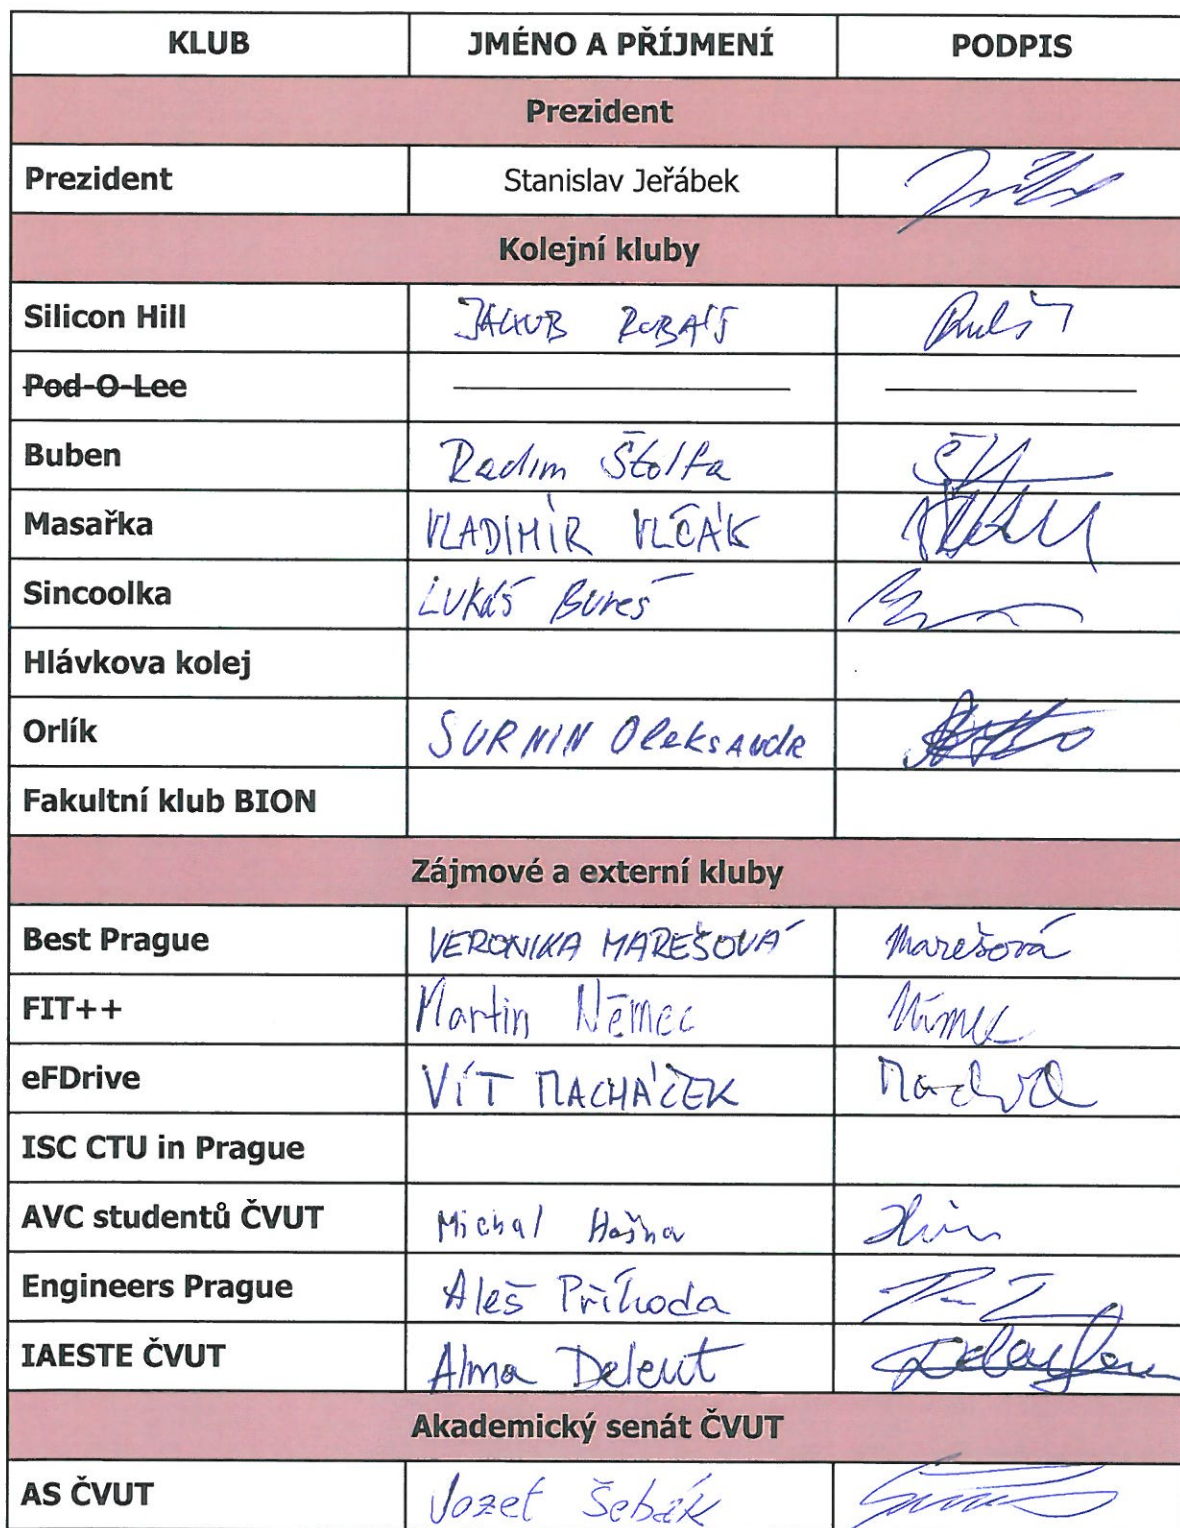 KLUB JMÉNO A PŘÍJMENÍ PODPIS
Prezident
Prezident Stanislav Jeřábek
Kolejní kluby
Silicon Hill JAKUB
Pod-O-Lee
Buben Radim Štolfa
Masařka VLADIMÍR VLČÁK
Sincoolka Lukáš Bureš
Hlávkova kolej
Orlík SURNIN Oleksandr
Fakultní klub BION
Zájmové a externí kluby
Best Prague VERONIKA MAREŠOVÁ Marešová
FIT++ Martin Němec Němec
eFDrive VÍT MACHÁČEK
ISC CTU in Prague
AVC studentů ČVUT Michal
Engineers Prague Aleš Příhoda
IAESTE ČVUT Alma
Akademický senát ČVUT
AS ČVUT Jozef Šebák